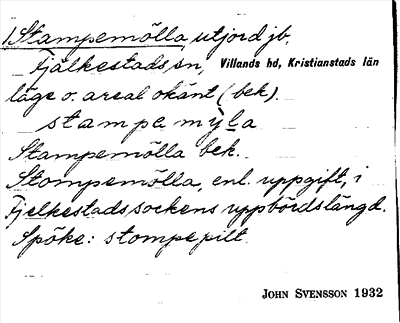 1. Stampemölla, utjord jb.
Fjälkestads sn, Villands hd, Kristianstads län
läge o. areal okänt (bek).
stampe mỳla
Stampemölla bek.
Stompemölla, enl. uppgift, i
Fjelkestads sockens uppbördslängd.
Spöke: stompepilt
JOHN SVENSSON 1932